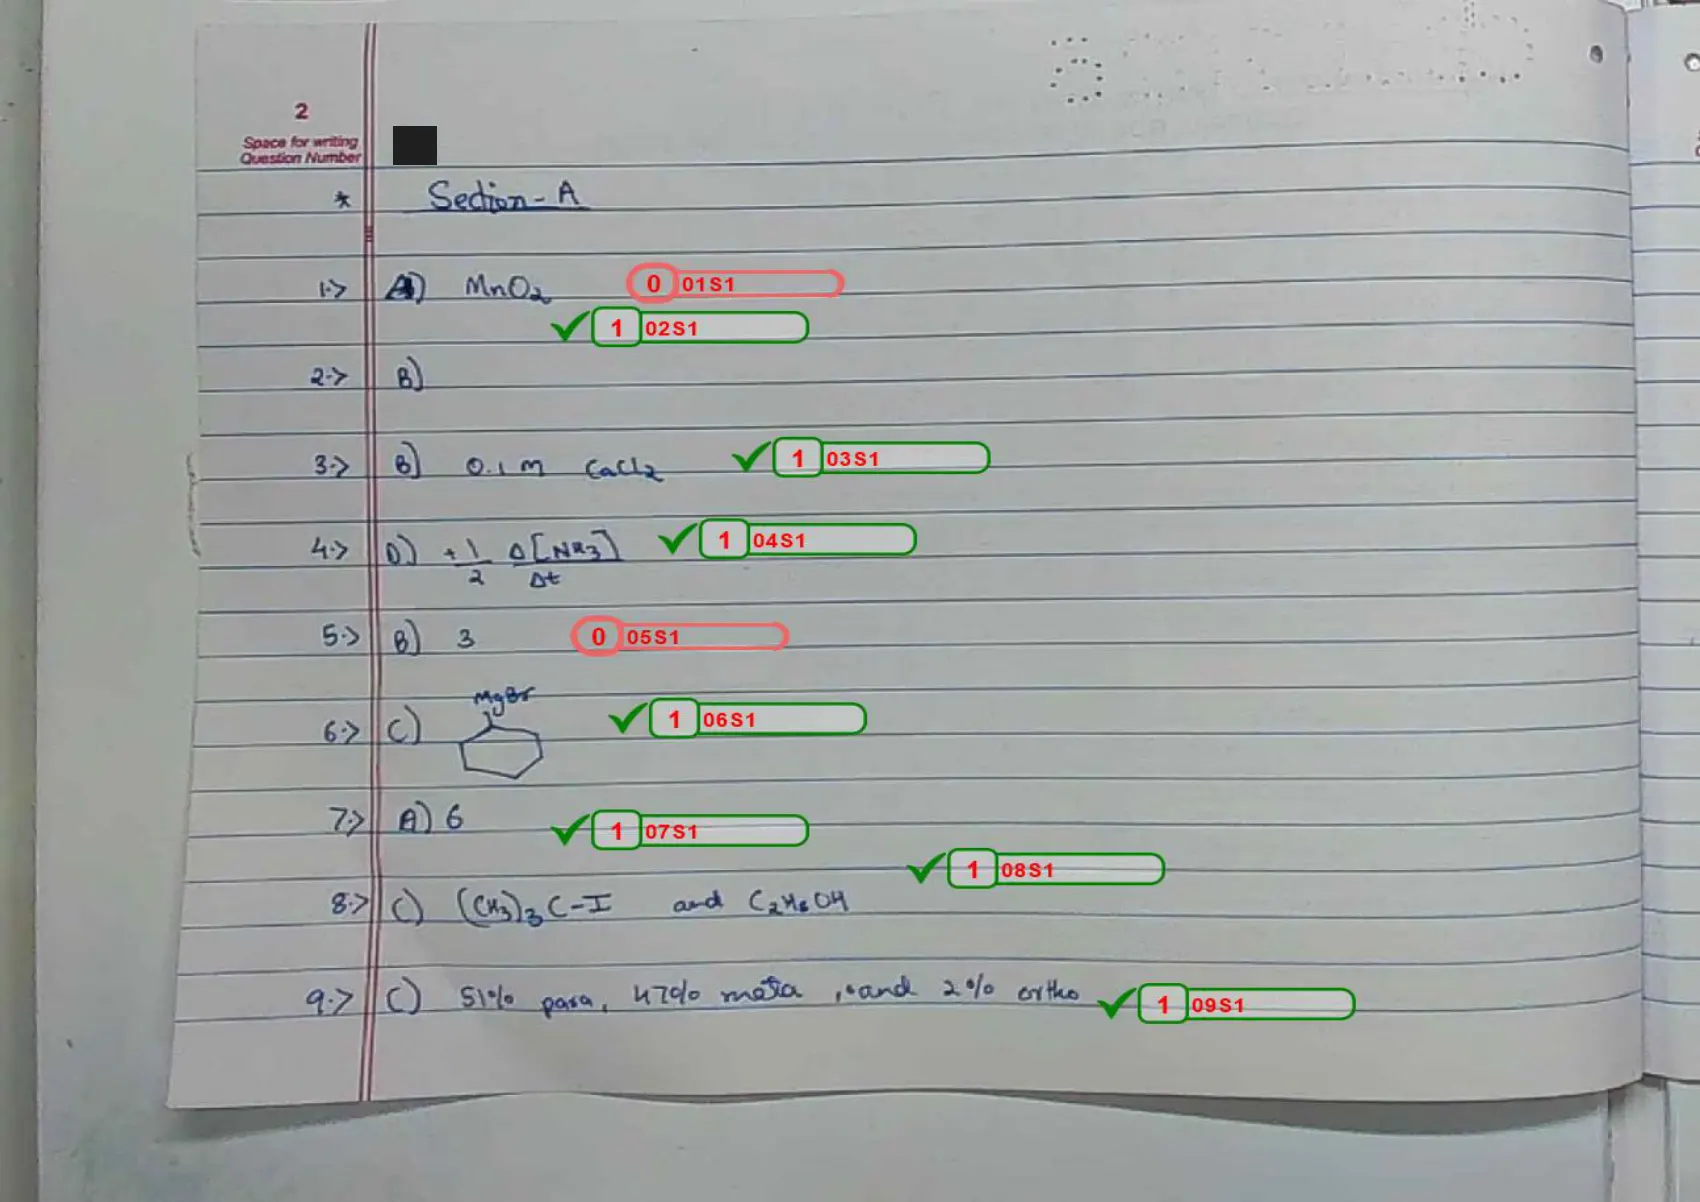 2
Space for writing
Question Number
* Section-A
1.> A) MnO2 0 01S1
1 02S1
2.> B)
3.> B) 0.1 M CaCl2 1 03S1
4.> D) +1/2 Δ[NH3]/Δt 1 04S1
5.> B) 3 0 05S1
MgBr
6.> C) 1 06S1
7.> A) 6 1 07S1
1 08S1
8.> C) (CH3)3 C-I and C2H5OH
9.> C) 51% para, 47% meta, and 2% ortho 1 09S1